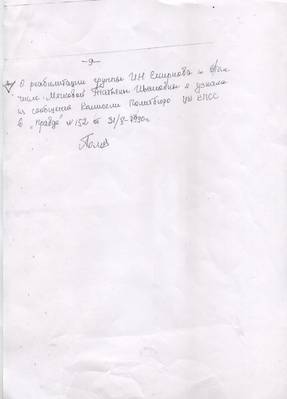 - 9 -
О реабилитации группы И.Н. Смирнова и в том
числе Мягковой Татьяны Ивановны я узнала
из сообщения Комиссии Политбюро ЦК КПСС
в "Правде" № 152 от 31/